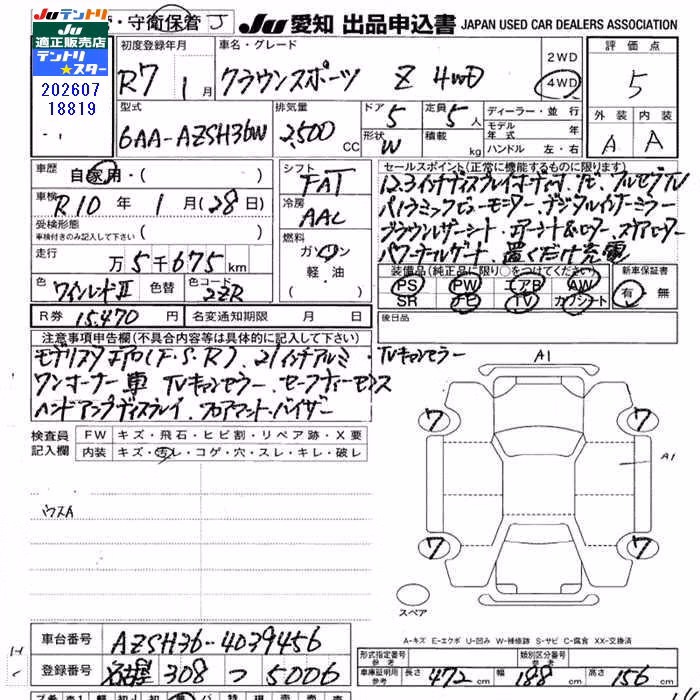 Juテントリ
適正販売店
テントリ
★スター
202607
18819
・守衛保管 J
Ju 愛知 出品申込書 JAPAN USED CAR DEALERS ASSOCIATION
初度登録年月
R7 1月
車名・グレード
クラウンスポーツ Z 4WD
2WD
4WD
評価点
5
型式
6AA-AZSH36W
排気量
2,500 CC
ドア 5
定員 5 人
形状 W
積載 kg
ディーラー・並行
モデル年式 年
ハンドル 左・右
外装 内装
A A
車歴
自家用・( )
車検
R10 年 1 月(28日)
受検形態
車検付きのみ記入して下さい
( )
走行
万 5 千 675 km
色 ワインレッドⅡ 色替 色コード 2ZR
シフト
FAT
冷房
AAC
燃料
ガソリン
軽・油
・( )
セールスポイント(正常に機能するものに限ります)
12.3インチディスプレイオーディオ・ナビ、フルセグTV
パノラミックビューモニター・デジタルインナーミラー
ブラウンレザーシート・エアーシート&ヒーター、ステアヒーター
パワーバックゲート、置くだけ充電
装備品(純正品に限り〇をつけてください)
PS PW エアB AW
SR ナビ TV カワシート
新車保証書
有・無
R券 15,470 円 名変通知期限 月 日
後日品
注意事項申告欄(不具合内容等は具体的に記入して下さい)
モデリスタエアロ(F・S・R)、21インチアルミ・TVキャンセラー
ワンオーナー車 TVキャンセラー、セーフティーセンス
ハンドアップディスプレイ、フロアマット・バイザー
検査員記入欄
FW キズ・飛石・ヒビ割・リペア跡・X要
内装 キズ・汚レ・コゲ・穴・スレ・キレ・破レ
A1
7 7
A1
7 7
スペア
A-キズ E-エクボ U-凹み W-補修跡 S-サビ C-腐食 XX-交換済
車台番号 AZSH36-4039456
登録番号 名古屋 308 つ 5006
形式指定番号 参考
類別区分番号 参考
車庫証明用 参考
長さ 472 cm 幅 188 cm 高さ 156 cm